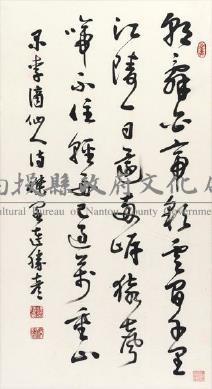 朝辭白帝彩雲間千里
江陵一日還兩岸猿聲
啼不住輕舟已過萬重山
录李謫仙人詩
南投縣政府文化局
Cultural Bureau of Nantou County Government